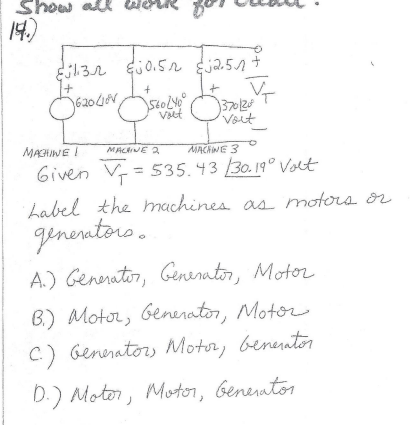 Show all work for credit.
14.)
j1.3Ω j0.5Ω j2.5Ω +
+ + + V̅T
560∠40° 370∠20°
Volt Volt
−
MACHINE 1 MACHINE 2 MACHINE 3
Given V̅T = 535.43 ∠30.19° Volt
Label the machines as motors or
generators.
A.) Generator, Generator, Motor
B.) Motor, Generator, Motor
C.) Generator, Motor, Generator
D.) Motor, Motor, Generator